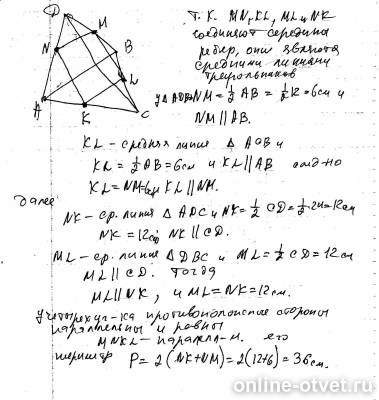 D
M
N
B
L
A
K
C
Т.К. MN, KL, ML и NK
соединяют середины
ребер, они являются
средними линиями
треугольников
у ΔADB NM = 1/2 AB = 1/2 12 = 6см и
NM ∥ AB.
KL - средняя линия Δ ACB и
KL = 1/2 AB = 6см и KL ∥ AB
KL = NM KL ∥ NM.
далее
NK - ср. линия Δ ADC и NK = 1/2 CD = 1/2 24 = 12см
NK = 12см, NK ∥ CD.
ML - ср. линия Δ DBC и ML = 1/2 CD = 12 см
ML ∥ CD. Тогда
ML ∥ NK, и ML = NK = 12 см.
у четырехуг-ка противоположные стороны
параллельны и равны
MNKL - паралел-м. его
периметр P = 2(NK+NM) = 2(12+6) = 36 см.
online-otvet.ru